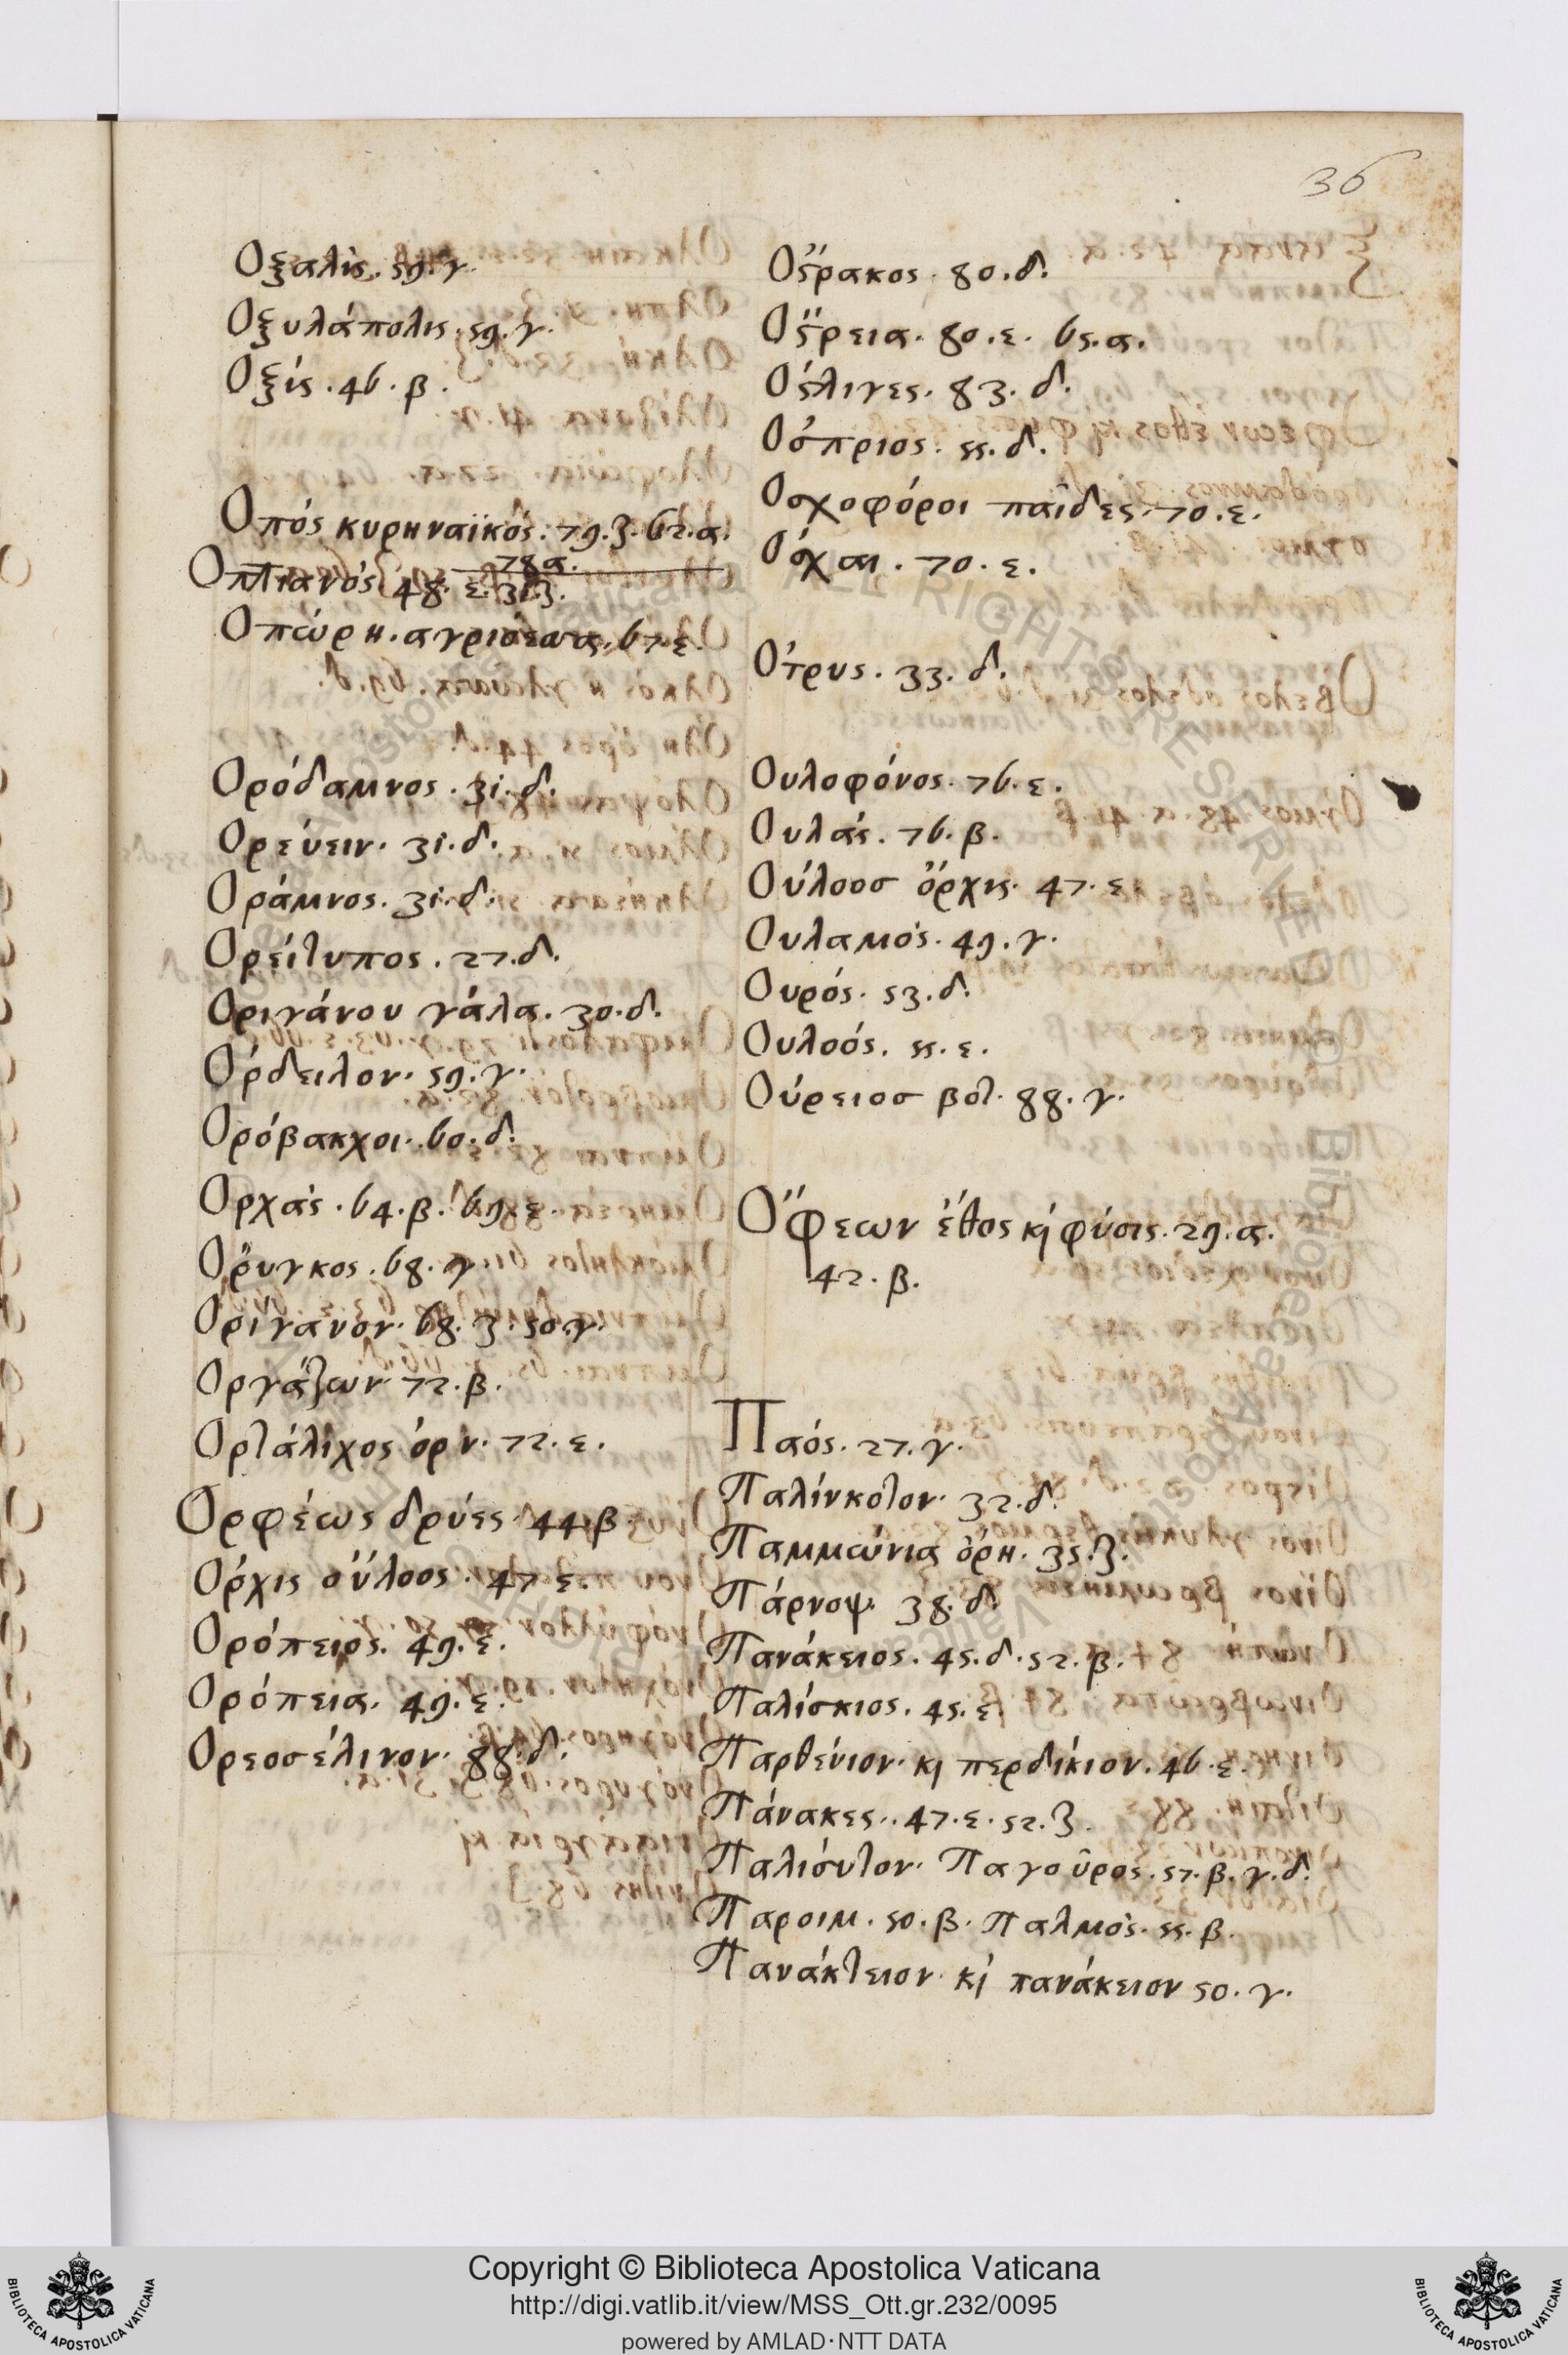 36
Οξαλὶς. 59. γ.
Οξυλάπολις. 59. γ.
Οξίς. 46. β.
Οπός κυρηναϊκός. 79. ζ. 62. α.
78 α.
Οππιανός. 48. ε. 31. ζ.
Οπώρη. αγριόεσσα. 67. ε.
Ορόδαμνος. 31. δ.
Ορεύειν. 31. δ.
Οράμνος. 31. δ.
Ορείτυπος. 27. δ.
Οριγάνου γάλα. 30. δ.
Ορδειλον. 59. γ.
Ορόβακχοι. 60. δ.
Ορχάς. 64. β. 69. ε.
Ορυγκος. 68. γ
Ορίγανον. 68. ζ. 50. γ.
Οργάζων. 72. β.
Ορτάλιχος όρν. 72. ε.
Ορφέως δρύες. 44. β.
Ορχις ούλοος. 47. ε.
Ορόπειος. 49. ε.
Ορόπεια. 49. ε.
Ορεοσέλινον. 88. δ.
Οστρακος. 80. δ.
Οστρεια. 80. ε. 65. α.
Οστλιγες. 83. δ.
Οσπριος. 55. δ.
Οσχοφόροι παῖδες. 70. ε.
Οσχαι. 70. ε.
Οτρυς. 33. δ.
Ουλοφόνος. 76. ε.
Ουλάς. 76. β.
Ούλοοσ όρχις. 47. ε
Ουλαμός. 49. γ.
Ουρός. 53. δ.
Ουλοός. 55. ε.
Ούρειοσ βοτ. 88. γ.
Οφεων έθος κὶ φύσις. 29. α.
42. β.
Παός. 27. γ.
Παλίνκοτον. 32. δ.
Παμμώνια όρη. 35. ζ.
Πάρνοψ. 38. δ.
Πανάκειος. 45. δ. 52. β.
Παλίσκιος. 45. ε.
Παρθένιον. κὶ περδίκιον. 46. ε.
Πάνακες. 47. ε. 52. ζ.
Παλιόυτον. Παγοῦρος. 57. β. γ. δ.
Παροιμ. 50. β. Παλμός. 55. β.
Πανάκτειον. κὶ πανάκειον 50. γ.
Copyright © Biblioteca Apostolica Vaticana
http://digi.vatlib.it/view/MSS_Ott.gr.232/0095
powered by AMLAD·NTT DATA
BIBLIOTECA APOSTOLICA VATICANA
BIBLIOTECA APOSTOLICA VATICANA